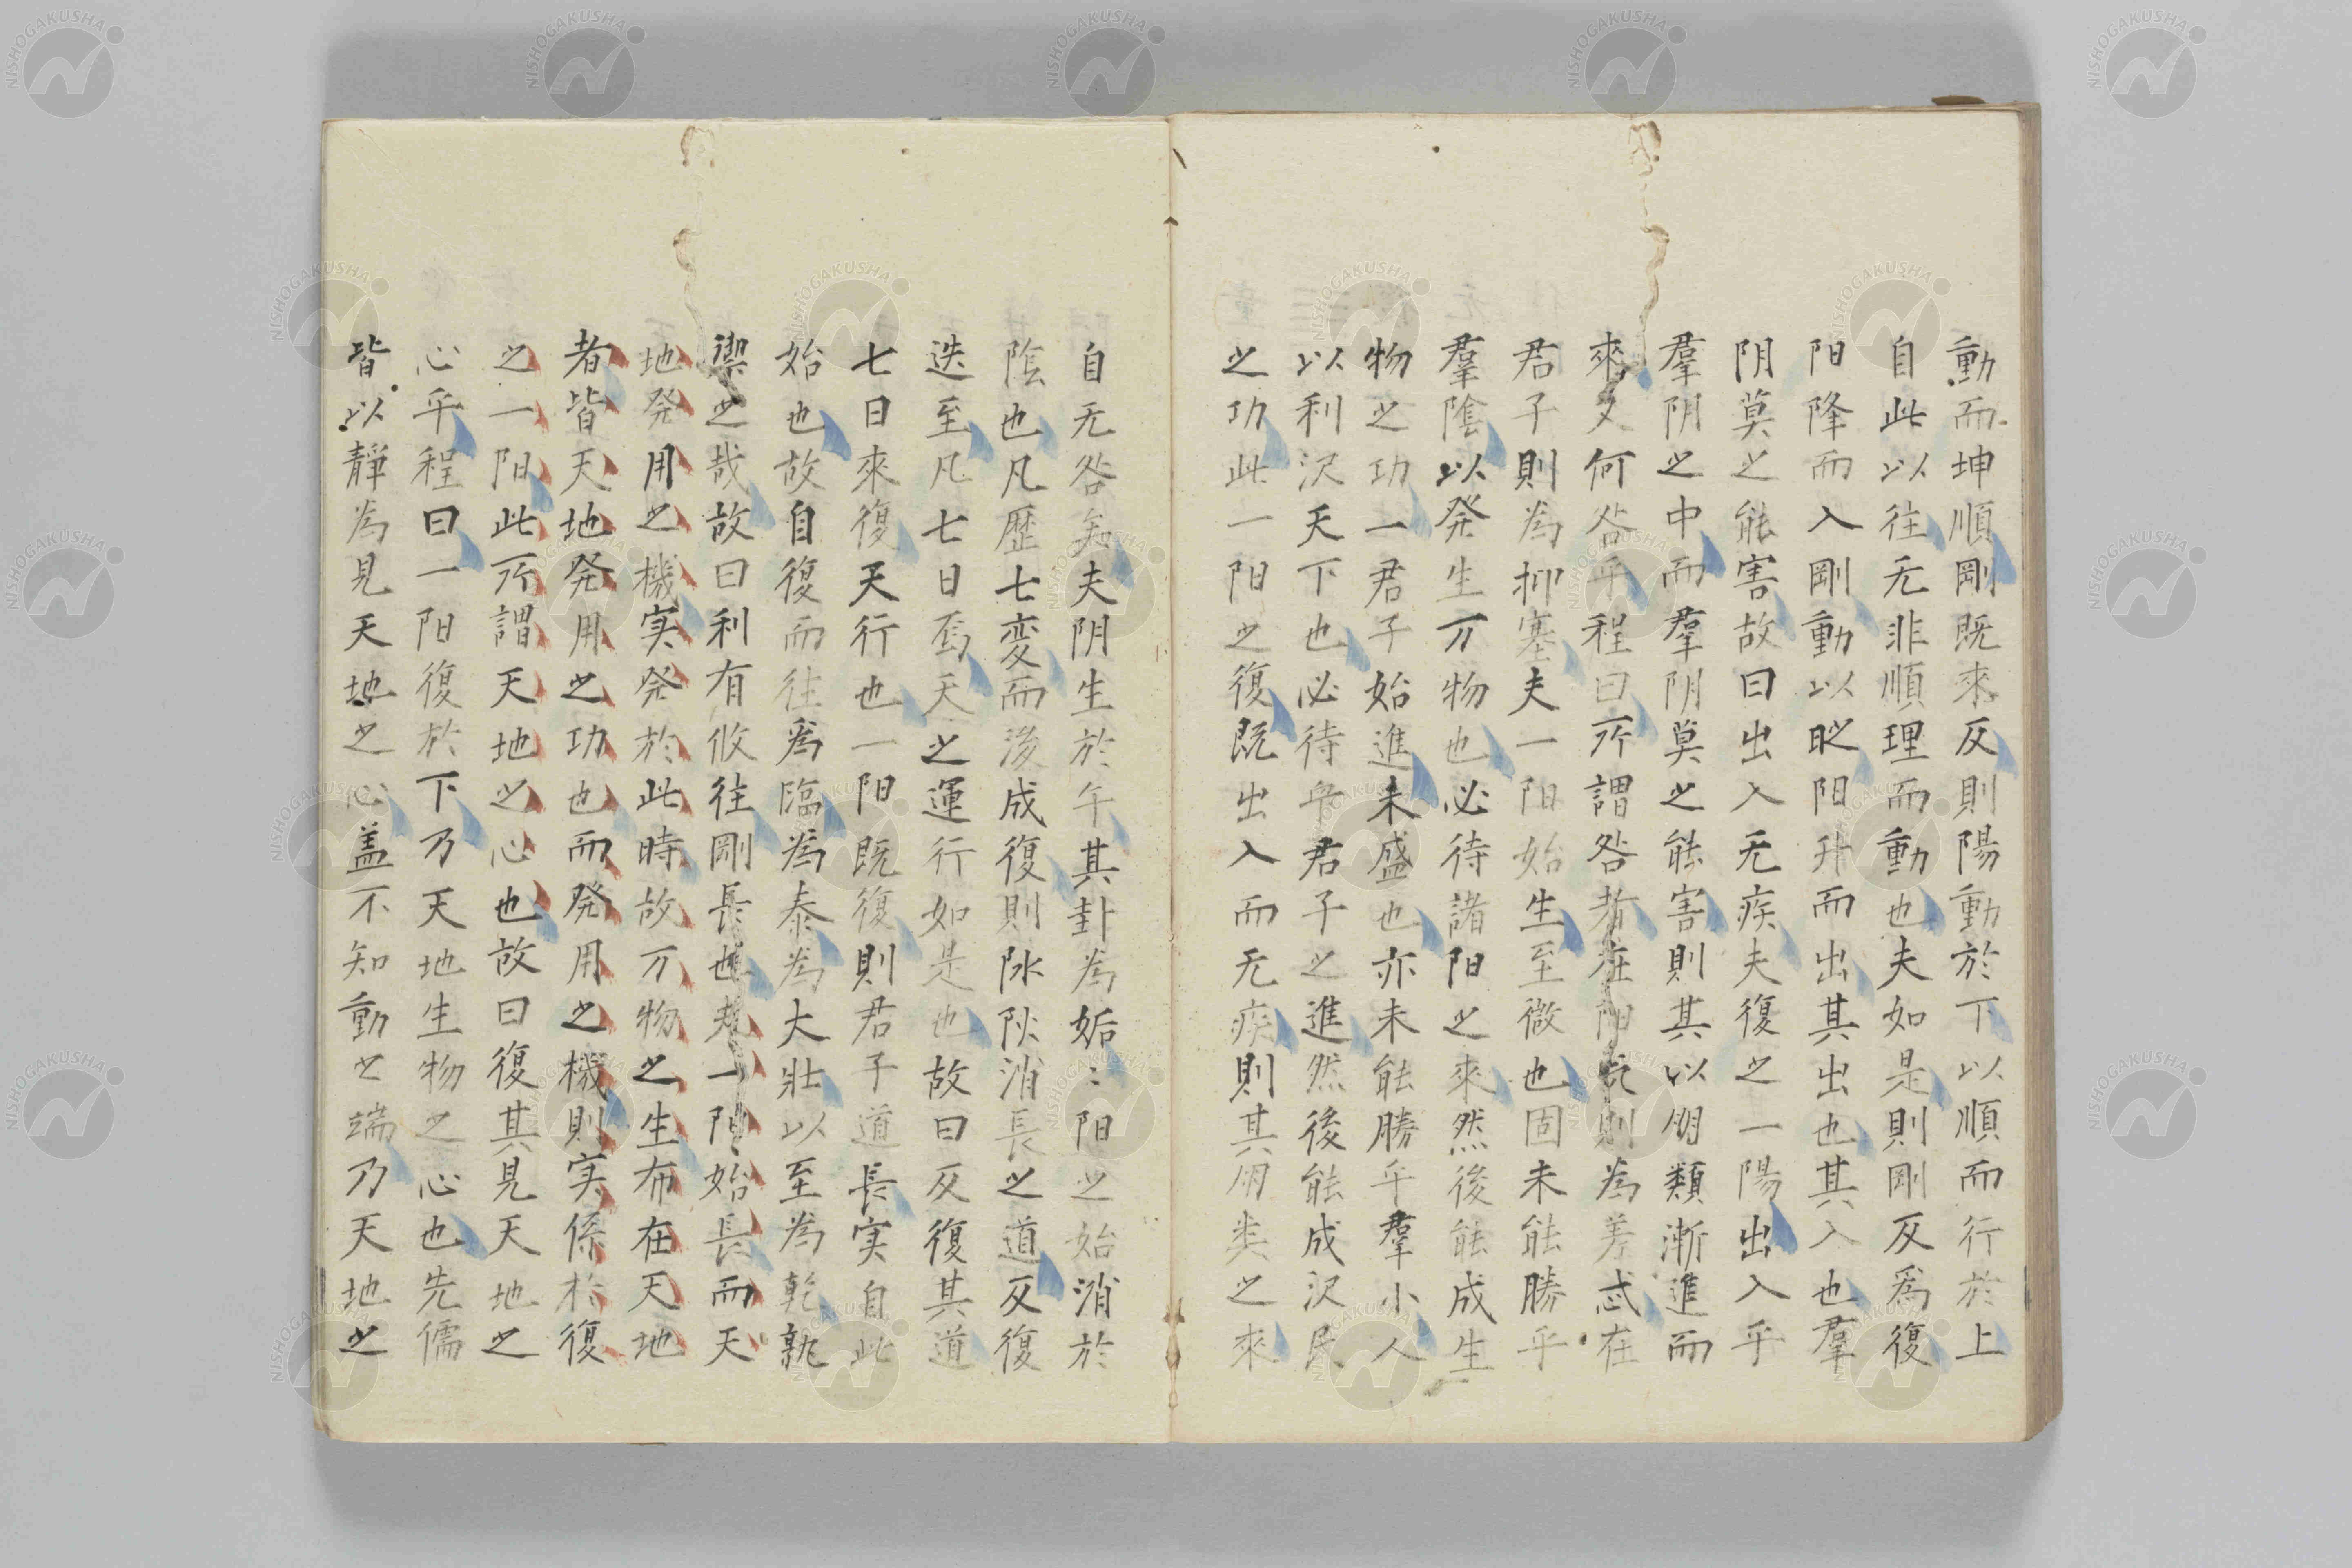 動而坤順剛既來反則陽動於下以順而行於上
自此以往无非順理而動也夫如是則剛反爲復
阳降而入剛動以昡阳升而出其出也其入也羣
阴莫之能害故曰出入无疾夫復之一陽出入乎
羣阴之中而羣阴莫之能害則其以朋類漸進而
來又何咎乎程曰所謂咎者在阳氣則為差忒在
君子則為抑塞夫一阳始生至微也固未能勝乎
羣陰以発生万物也必待諸阳之來然後能成生
物之功一君子始進未盛也亦未能勝乎羣小人
以利沢天下也必待乎君子之進然後能成沢民
之功此一阳之復既出入而无疾則其朋类之來
自无咎矣夫阴生於午其卦為姤〻阳之始消於
陰也凡歷七変而後成復則阦阴消長之道反復
迭至凡七日焉天之運行如是也故曰反復其道
七日來復天行也一阳既復則君子道長実自此
始也故自復而往爲臨爲泰爲大壯以至爲乾孰
禦之哉故曰利有攸往剛長也夫一阳始長而天
地発用之機実発於此時故万物之生布在天地
者皆天地発用之功也而発用之機則実係於復
之一阳此所謂天地之心也故曰復其見天地之
心乎程曰一阳復於下乃天地生物之心也先儒
皆以靜為見天地之心盖不知動之端乃天地之